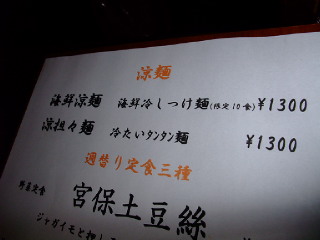 涼麺
海鮮涼麺 海鮮冷しつけ麺(限定10食) ¥1300
涼担々麺 冷たいタンタン麺 ¥1300
週替り定食三種
野菜定食 宮保土豆絲
ジャガイモと押し